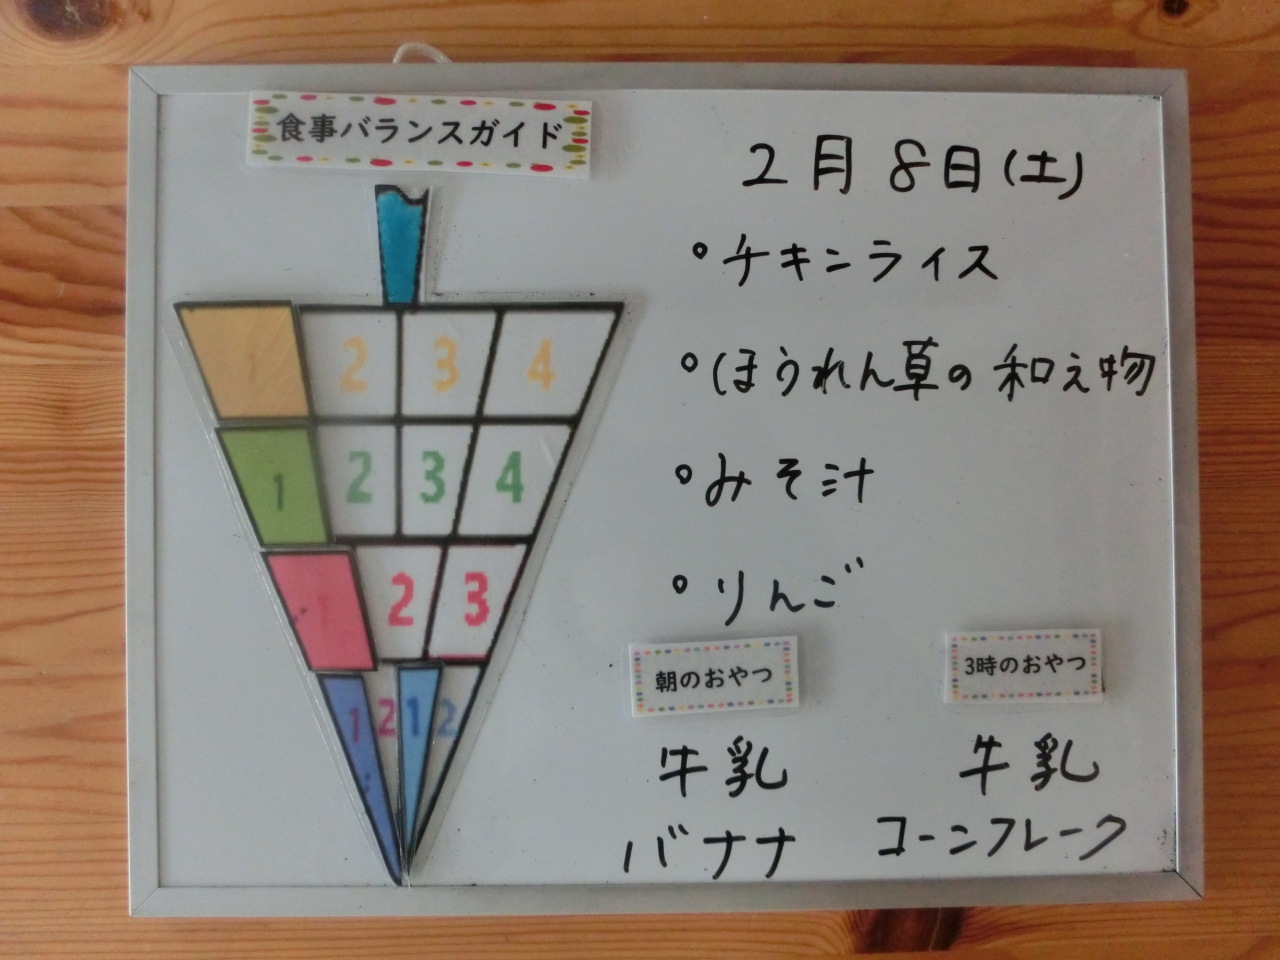 食事バランスガイド
2月8日(土)
。チキンライス
。ほうれん草の和え物
。みそ汁
。りんご
1 2 3 4
1 2 3 4
1 2 3
1 2 1 2
朝のおやつ
牛乳
バナナ
3時のおやつ
牛乳
コーンフレーク